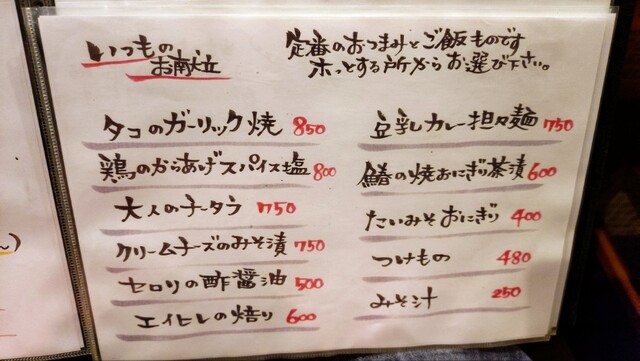 いつもの
お献立
定番のおつまみとご飯ものです
ホッとする所からお選び下さい。
タコのガーリック焼 850
鶏のからあげスパイス塩 800
大人のチータラ 750
クリームチーズのみそ漬 750
セロリの酢醤油 500
エイヒレの焙り 600
豆乳カレー担々麺 750
鰆の焼おにぎり茶漬 600
たいみそおにぎり 400
つけもの 480
みそ汁 250